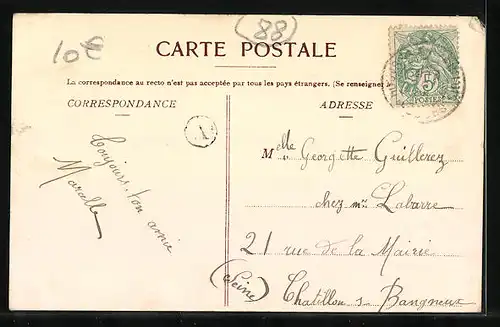 10€
88
CARTE POSTALE
La correspondance au recto n'est pas acceptée par tous les pays étrangers. (Se renseigner
CORRESPONDANCE
ADRESSE
5
POSTES
Toujours, ton amie
Marcelle
Melle Georgette Guillerez
chez mr Labarre
21 rue de la Mairie
(Seine)
Chatillon s- Bangneux